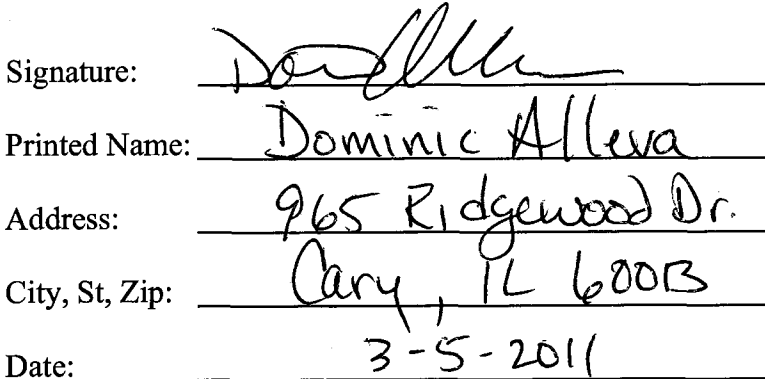 Signature:
Printed Name: Dominic Alleva
Address: 965 Ridgewood Dr.
City, St, Zip: Cary, IL 60013
Date: 3-5-2011